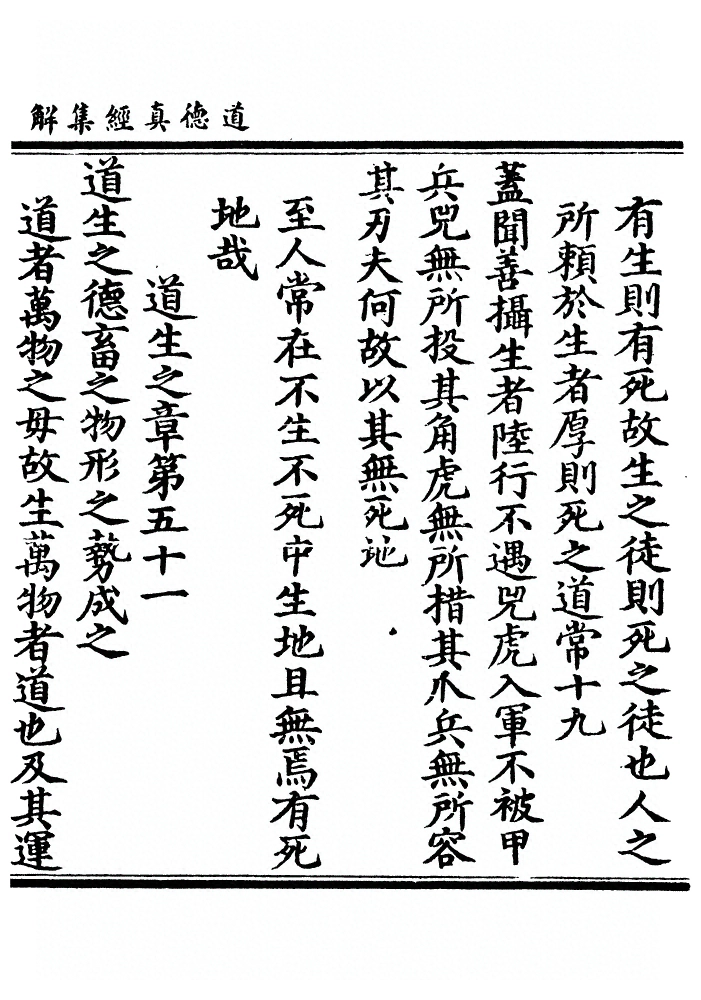 道德真經集解
有生則有死故生之徒則死之徒也人之
所賴於生者厚則死之道常十九
蓋聞善攝生者陸行不遇兕虎入軍不被甲
兵兕無所投其角虎無所措其爪兵無所容
其刃夫何故以其無死地
至人常在不生不死中生地且無焉有死
地哉
道生之章第五十一
道生之德畜之物形之勢成之
道者萬物之母故生萬物者道也及其運